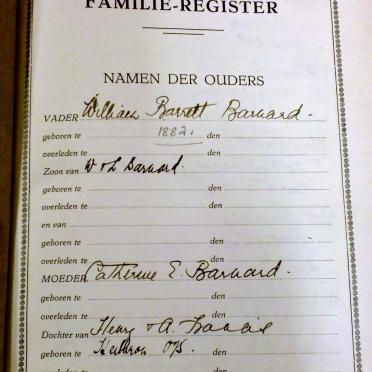 FAMILIE-REGISTER
NAMEN DER OUDERS
VADER William Barrett Barnard.
geboren te 1882. den
overleden te den
Zoon van W & L Barnard.
geboren te den
overleden te den
en van
geboren te den
overleden te den
MOEDER Catherine E. Barnard.
geboren te den
overleden te den
Dochter van Henry & A. Francis
geboren te Heilbron OFS. den
overleden te den